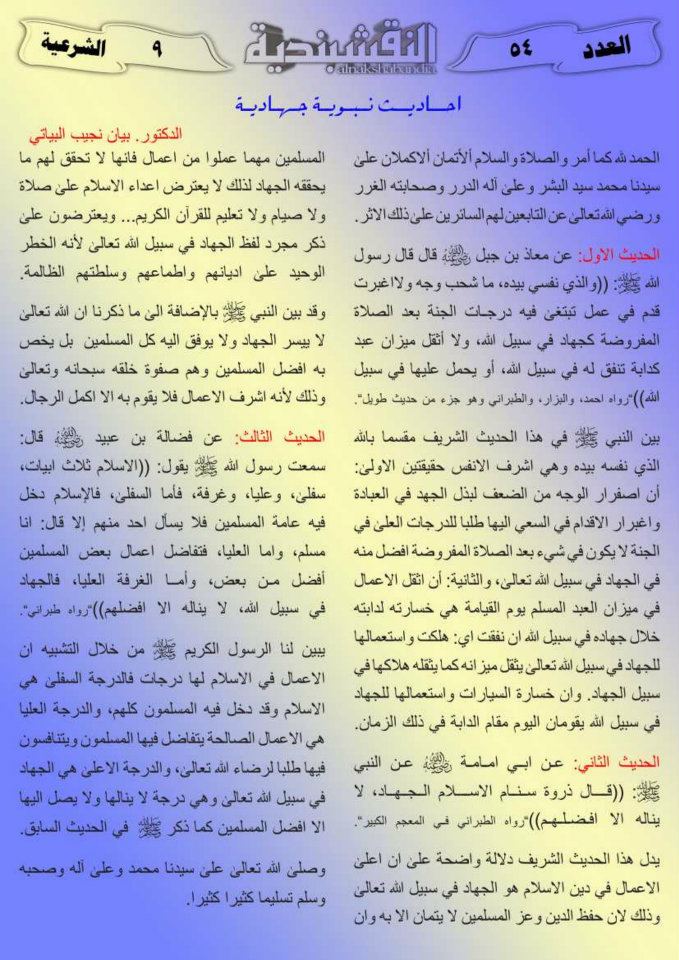 العدد
٥٤
النقشبندية
alnakshabandia
٩
الشرعية
احاديث نبوية جهادية
الدكتور. بيان نجيب البياتي
الحمد لله كما أمر والصلاة والسلام ألأتمان ألاكملان على
سيدنا محمد سيد البشر وعلى آله الدرر وصحابته الغرر
ورضي الله تعالى عن التابعين لهم السائرين على ذلك الاثر.
الحديث الاول: عن معاذ بن جبل رضي الله عنه قال قال رسول
الله ﷺ: ((والذي نفسي بيده، ما شحب وجه ولااغبرت
قدم في عمل تبتغى فيه درجات الجنة بعد الصلاة
المفروضة كجهاد في سبيل الله، ولا أثقل ميزان عبد
كدابة تنفق له في سبيل الله، أو يحمل عليها في سبيل
الله))"رواه احمد، والبزار، والطبراني وهو جزء من حديث طويل".
بين النبي ﷺ في هذا الحديث الشريف مقسما بالله
الذي نفسه بيده وهي اشرف الانفس حقيقتين الاولى:
أن اصفرار الوجه من الضعف لبذل الجهد في العبادة
واغبرار الاقدام في السعي اليها طلبا للدرجات العلى في
الجنة لا يكون في شيء بعد الصلاة المفروضة افضل منه
في الجهاد في سبيل الله تعالى، والثانية: أن اثقل الاعمال
في ميزان العبد المسلم يوم القيامة هي خسارته لدابته
خلال جهاده في سبيل الله ان نفقت اي: هلكت واستعمالها
للجهاد في سبيل الله تعالى يثقل ميزانه كما يثقله هلاكها في
سبيل الجهاد. وان خسارة السيارات واستعمالها للجهاد
في سبيل الله يقومان اليوم مقام الدابة في ذلك الزمان.
الحديث الثاني: عن ابي امامة رضي الله عنه عن النبي
ﷺ: ((قال ذروة سنام الاسلام الجهاد، لا
يناله الا افضلهم))"رواه الطبراني في المعجم الكبير".
يدل هذا الحديث الشريف دلالة واضحة على ان اعلى
الاعمال في دين الاسلام هو الجهاد في سبيل الله تعالى
وذلك لان حفظ الدين وعز المسلمين لا يتمان الا به وان
المسلمين مهما عملوا من اعمال فانها لا تحقق لهم ما
يحققه الجهاد لذلك لا يعترض اعداء الاسلام على صلاة
ولا صيام ولا تعليم للقرآن الكريم... ويعترضون على
ذكر مجرد لفظ الجهاد في سبيل الله تعالى لأنه الخطر
الوحيد على اديانهم واطماعهم وسلطتهم الظالمة.
وقد بين النبي ﷺ بالإضافة الى ما ذكرنا ان الله تعالى
لا ييسر الجهاد ولا يوفق اليه كل المسلمين بل يخص
به افضل المسلمين وهم صفوة خلقه سبحانه وتعالى
وذلك لأنه اشرف الاعمال فلا يقوم به الا اكمل الرجال.
الحديث الثالث: عن فضالة بن عبيد رضي الله عنه قال:
سمعت رسول الله ﷺ يقول: ((الاسلام ثلاث ابيات،
سفلى، وعليا، وغرفة، فأما السفلى، فالإسلام دخل
فيه عامة المسلمين فلا يسأل احد منهم إلا قال: انا
مسلم، واما العليا، فتفاضل اعمال بعض المسلمين
أفضل من بعض، وأما الغرفة العليا، فالجهاد
في سبيل الله، لا يناله الا افضلهم))"رواه طبراني".
يبين لنا الرسول الكريم ﷺ من خلال التشبيه ان
الاعمال في الاسلام لها درجات فالدرجة السفلى هي
الاسلام وقد دخل فيه المسلمون كلهم، والدرجة العليا
هي الاعمال الصالحة يتفاضل فيها المسلمون ويتنافسون
فيها طلبا لرضاء الله تعالى، والدرجة الاعلى هي الجهاد
في سبيل الله تعالى وهي درجة لا ينالها ولا يصل اليها
الا افضل المسلمين كما ذكر ﷺ في الحديث السابق.
وصلى الله تعالى على سيدنا محمد وعلى آله وصحبه
وسلم تسليما كثيرا كثيرا.